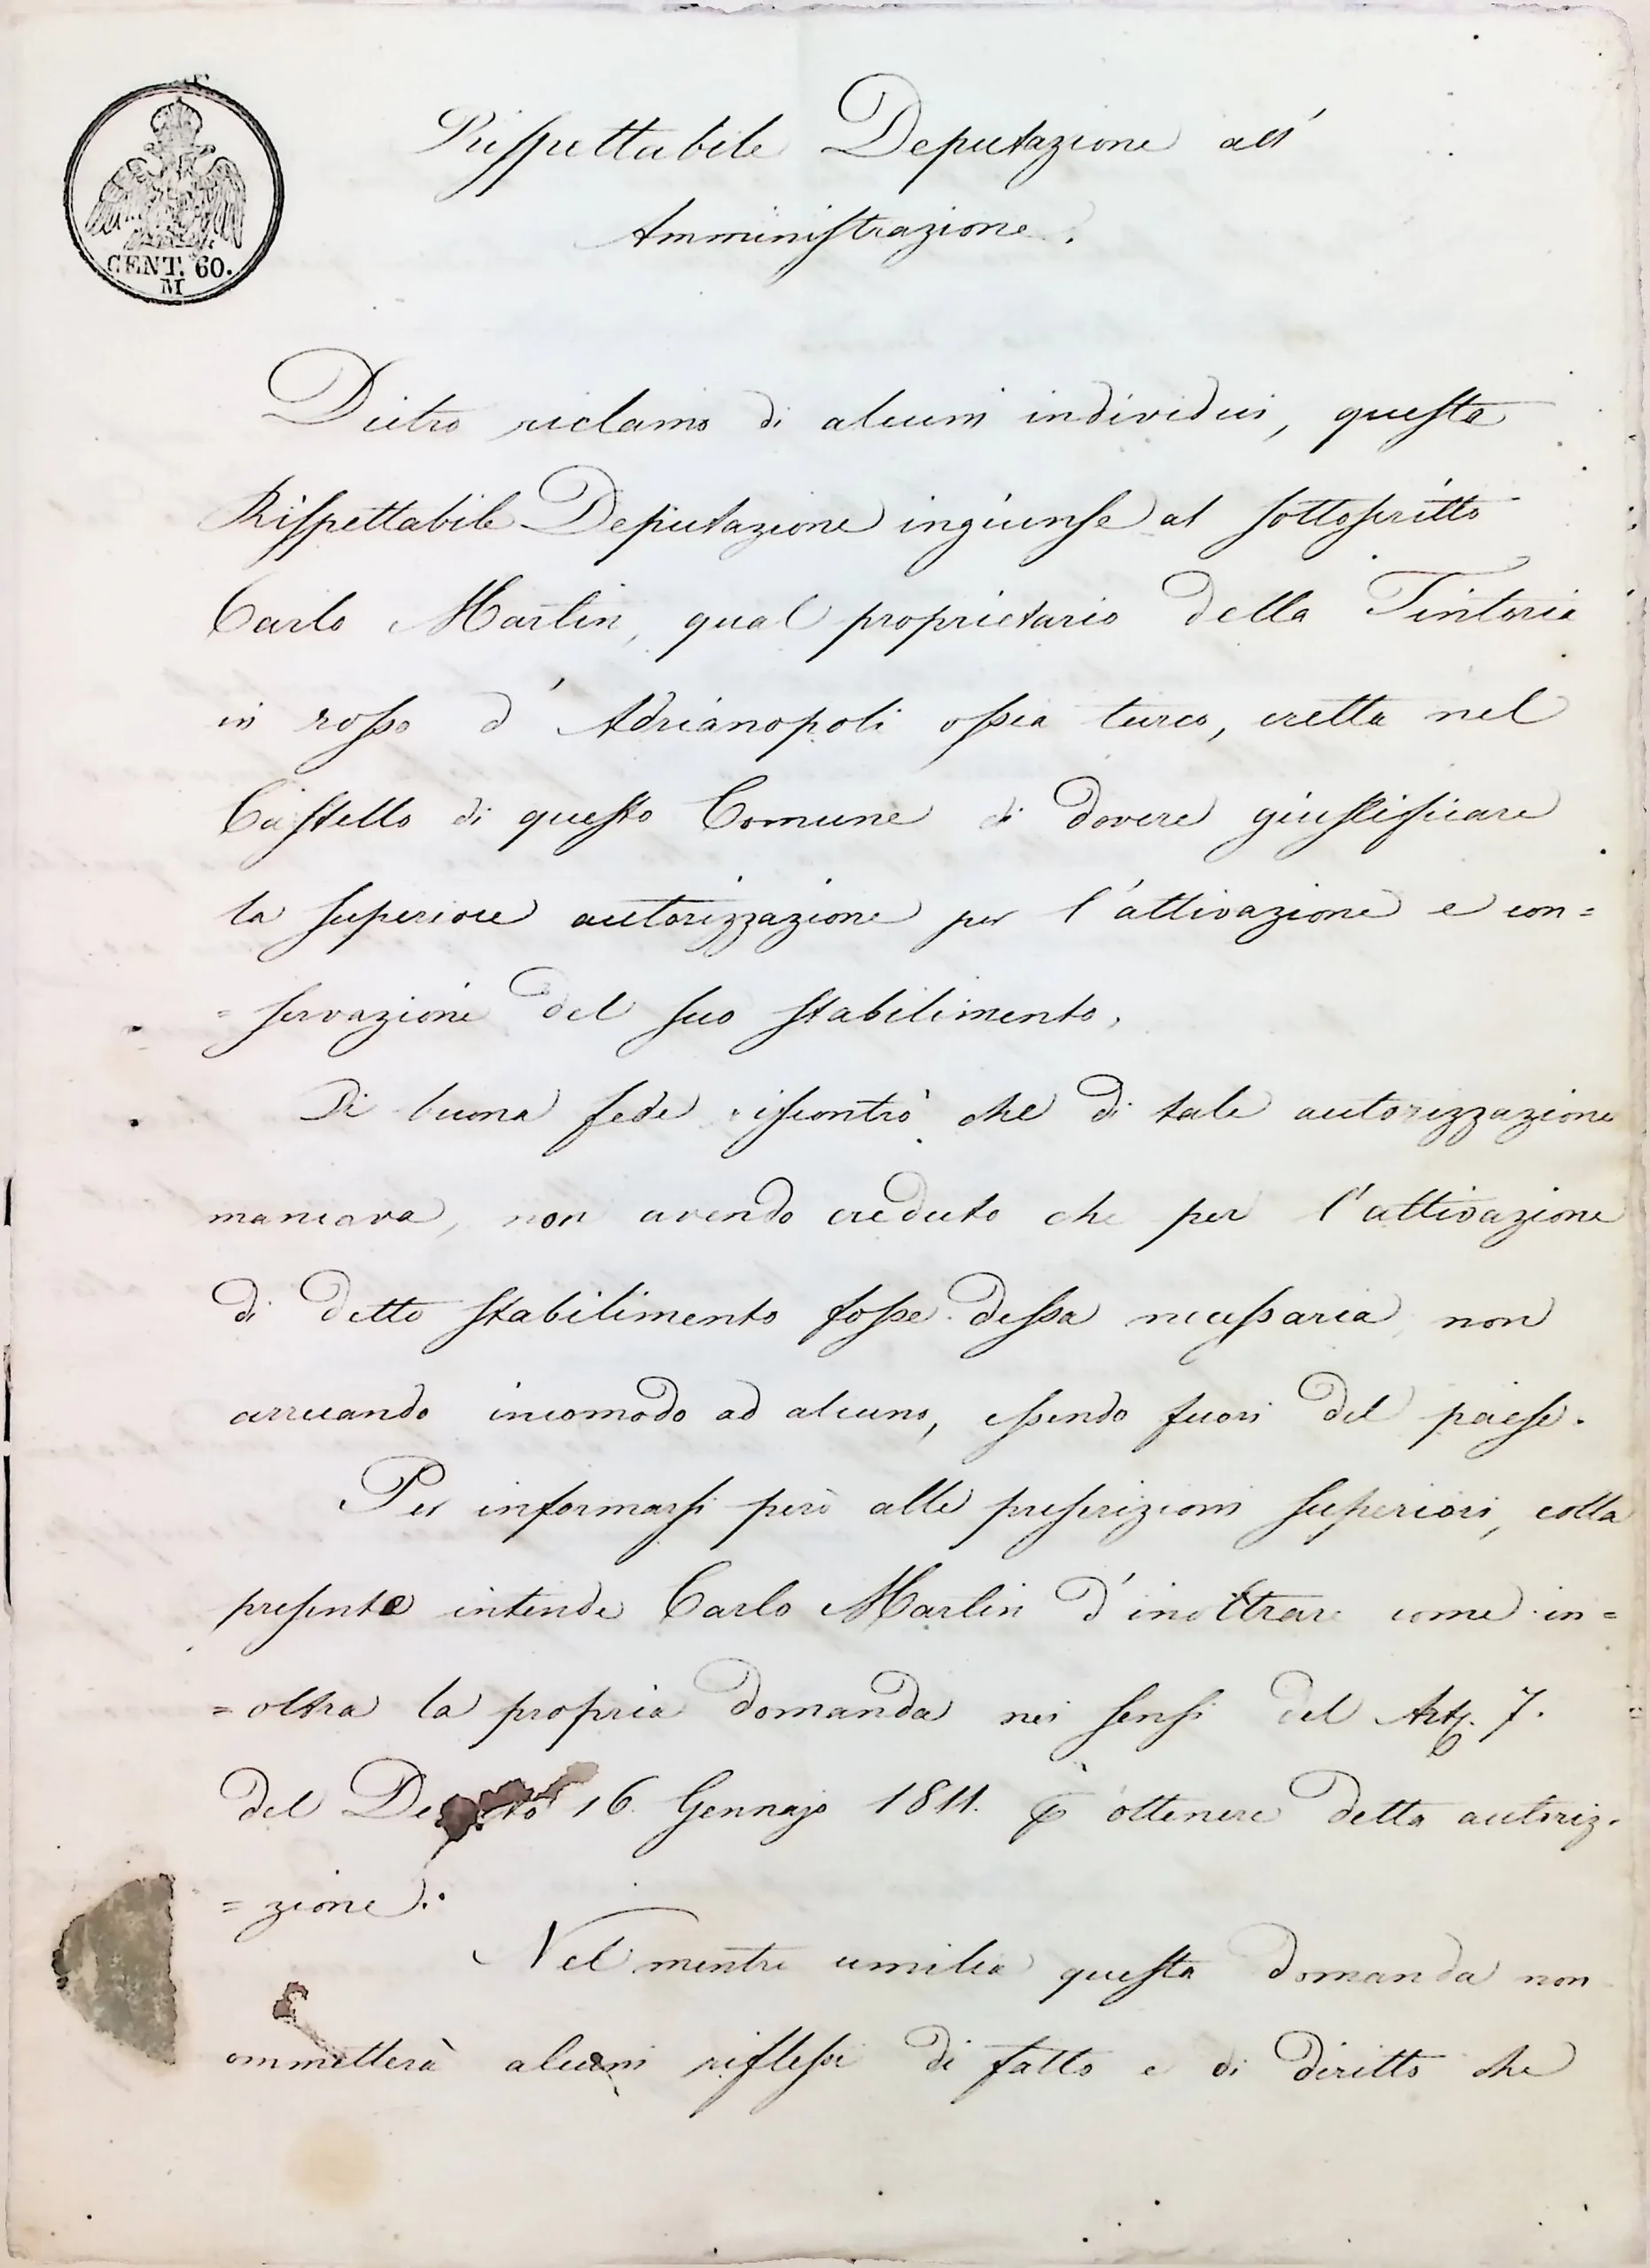 CENT. 60.
M
Rispettabile Deputazione all'
Amministrazione.
Dietro reclamo di alcuni individui, questa
Rispettabile Deputazione ingiunse al sottoscritto
Carlo Martin, qual proprietario della Tintoria
in rosso d'Adrianopoli ossia turco, eretta nel
Castello di questo Comune di dovere giustificare
la superiore autorizzazione per l'attivazione e con=
=servazione del suo stabilimento.
Di buona fede riscontrò che di tale autorizzazione
mancava, non avendo creduto che per l'attivazione
di detto stabilimento fosse dessa necessaria, non
arrecando incomodo ad alcuno, essendo fuori del paese.
Per informarsi però alle prescrizioni superiori, colla
presente intende Carlo Martin d'inoltrare come in=
=oltra la propria domanda nei sensi del Art. 7.
del Decreto 16 Gennajo 1811. per ottenere detta autoriz.
=zione.
Nel mentre umilia questa domanda non
ommetterà alcuni riflessi di fatto e di diritto che